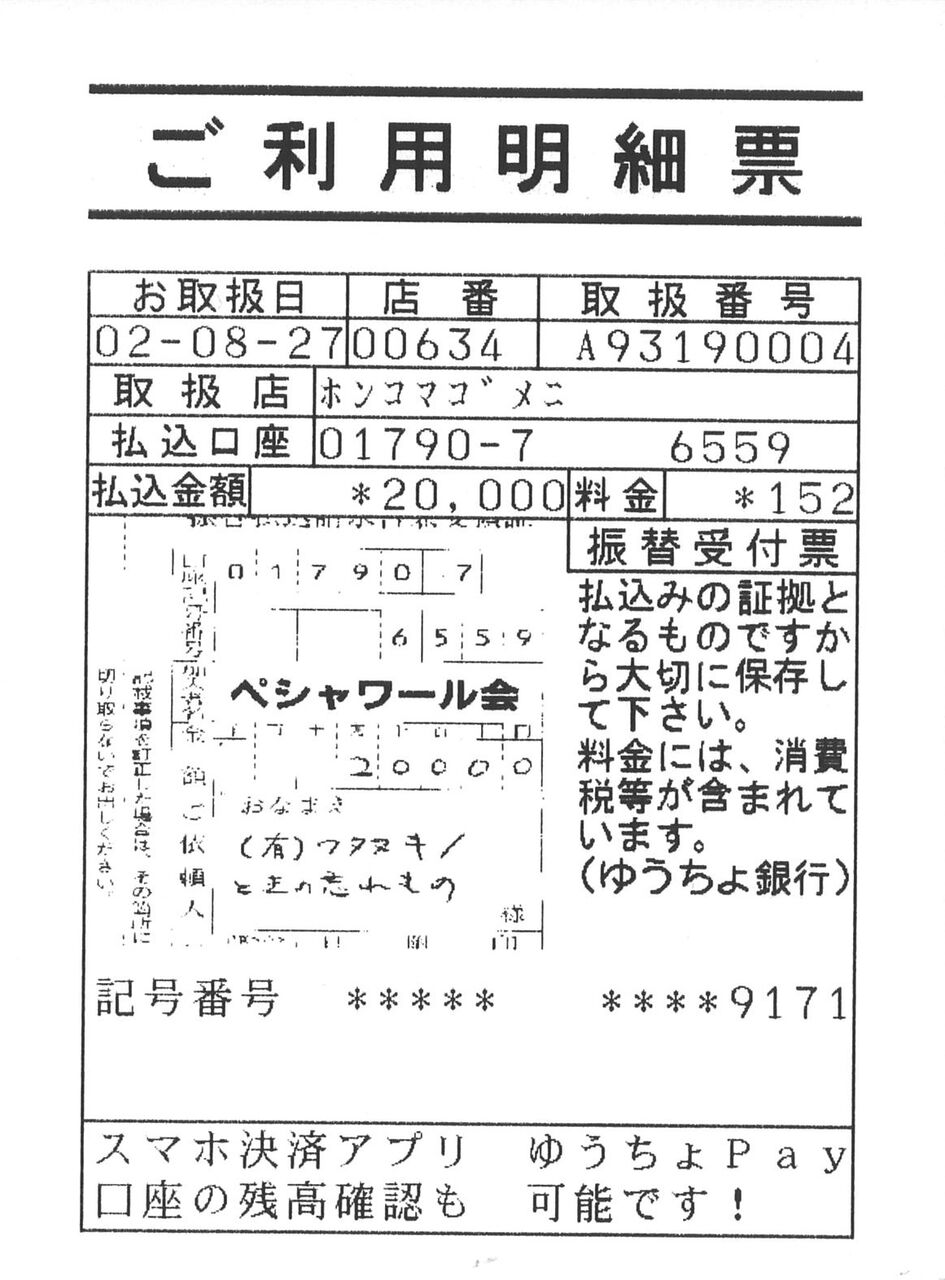 ご利用明細票
お取扱日 店番 取扱番号
02-08-27 00634 A93190004
取扱店 ホンコマゴメニ
払込口座 01790-7 6559
払込金額 *20,000 料金 *152
振替受付票
払込みの証拠と
なるものですか
ら大切に保存し
て下さい。
料金には、消費
税等が含まれて
います。
(ゆうちょ銀行)
01790 7
6559
ペシャワール会
20000
おなまえ
(有)ワタヌキ/
ときの忘れもの
様
金額
ご依頼人
記載事項を訂正した場合は、その箇所に
切り取らないでお出しください。
記号番号 ***** ****9171
スマホ決済アプリ ゆうちょPay
口座の残高確認も 可能です!